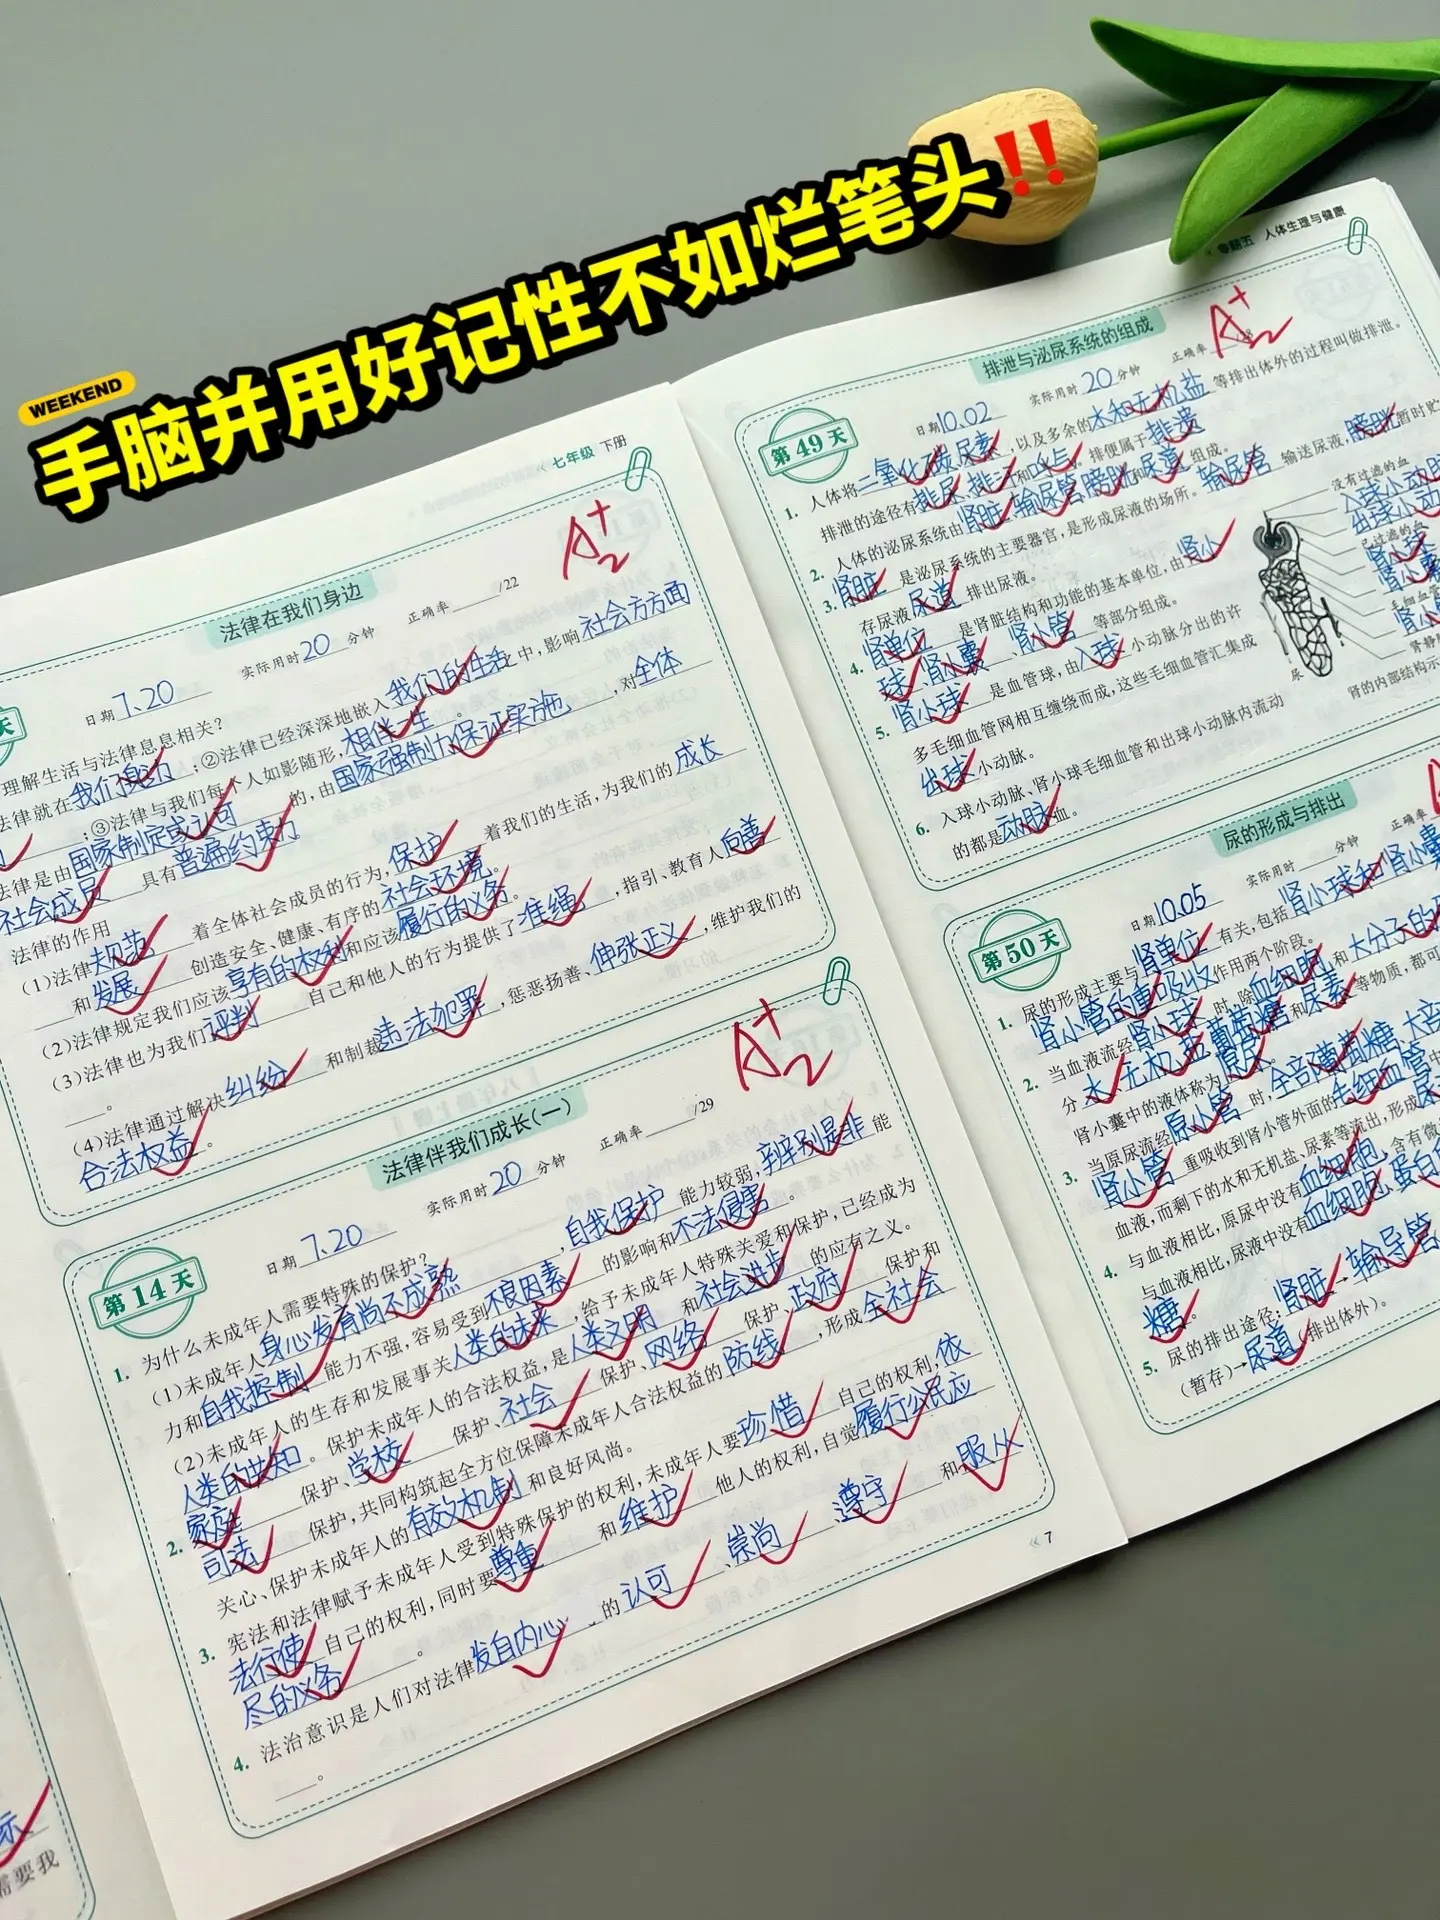 手脑并用好记性不如烂笔头‼
WEEKEND
七年级 下册
法律在我们身边
日期 7.20 实际用时 20 分钟 正确率 /22
理解生活与法律息息相关?
律就在我们身边;②法律已经深深地嵌入我们的生活之中,影响社会方方面面
;③法律与我们每个人如影随形,相伴一生。
法律是由国家制定或认可的,由国家强制力保证实施,对全体
社会成员具有普遍约束力
法律的作用
(1)法律规范着全体社会成员的行为,保护着我们的生活,为我们的成长
和发展创造安全、健康、有序的社会环境。
(2)法律规定我们应该享有的权利和应该履行的义务。
(3)法律也为我们评判自己和他人的行为提供了准绳,指引、教育人向善
。
(4)法律通过解决纠纷和制裁违法犯罪,惩恶扬善、伸张正义,维护我们的
合法权益。
法律伴我们成长(一)
第14天 日期 7.20 实际用时 20 分钟 正确率 /29
1. 为什么未成年人需要特殊的保护?
(1)未成年人身心发育尚不成熟,自我保护能力较弱,辨别是非能
力和自我控制能力不强,容易受到不良因素的影响和不法侵害。
(2)未成年人的生存和发展事关人类的未来,给予未成年人特殊关爱和保护,已经成为
人类的共知。保护未成年人的合法权益,是人类文明和社会进步的应有之义。
2. 家庭保护、学校保护、社会保护、网络保护、政府保护和
司法保护,共同构筑起全方位保障未成年人合法权益的防线,形成全社会
关心、保护未成年人的有效机制和良好风尚。
3. 宪法和法律赋予未成年人受到特殊保护的权利,未成年人要珍惜自己的权利,依
法行使自己的权利,同时要尊重和维护他人的权利,自觉履行公民应
尽的义务。
4. 法治意识是人们对法律发自内心的认可、崇尚、遵守和服从
。
7
专题五 人体生理与健康
排泄与泌尿系统的组成
第49天 日期 10.02 实际用时 20 分钟 正确率
1. 人体将二氧化碳、尿素,以及多余的水和无机盐等排出体外的过程叫做排泄。
排泄的途径有排尿、排汗和呼气。排便属于排溃
2. 人体的泌尿系统由肾脏、输尿管、膀胱和尿道组成。
3. 肾脏是泌尿系统的主要器官,是形成尿液的场所。输尿管输送尿液,膀胱暂时贮
存尿液,尿道排出尿液。
4. 肾单位是肾脏结构和功能的基本单位,由肾小
球、肾小囊、肾小管等部分组成。
5. 肾小球是血管球,由入球小动脉分出的许
多毛细血管网相互缠绕而成,这些毛细血管汇集成
出球小动脉。
6. 入球小动脉、肾小球毛细血管和出球小动脉内流动
的都是动脉血。
没有过滤的血
入球小动脉
出球小动
已过滤的血
毛细血管
肾静脉
尿
肾的内部结构示
尿的形成与排出
第50天 日期 10.05 实际用时 分钟 正确率
1. 尿的形成主要与肾单位有关,包括肾小球和肾小囊
肾小管的重吸收作用两个阶段。
2. 当血液流经肾小球时,除血细胞和大分子的
分水、无机盐、葡萄糖和尿素等物质,都可
肾小囊中的液体称为原尿。
3. 当原尿流经原小管时,全部葡萄糖、大部
肾小管重吸收到肾小管外面的毛细血管中
血液,而剩下的水和无机盐、尿素等流出,形成尿
4. 与血液相比,原尿中没有血细胞,含有微
与血液相比,尿液中没有血细胞、蛋白
糖。
5. 尿的排出途径:肾脏→输导管
(暂存)→尿道(排出体外)。